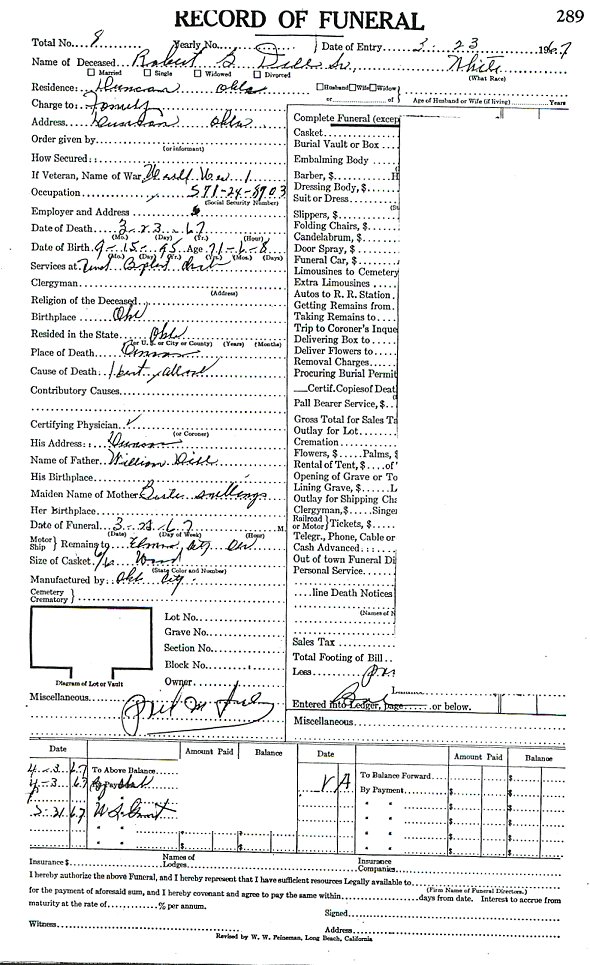 RECORD OF FUNERAL 289
Total No. 8 Yearly No. Date of Entry 3 23 1967
Name of Deceased Robert S Dill Sr. White
(What Race)
Married Single Widowed Divorced
Residence: Duncan Okla Husband Wife Widow
or of Age of Husband or Wife (if living) Years
Charge to: Family
Address Duncan Okla.
Order given by
(or informant)
How Secured:
If Veteran, Name of War World War 1
Occupation 571-24-8903
(Social Security Number)
Employer and Address
Date of Death 3-23-67
(Mo.) (Day) (Yr.) (Hour)
Date of Birth 9-15-95 Age 71-6-8
(Mo.) (Day) (Yr.) (Yrs.) (Mos.) (Days)
Services at
Clergyman
(Address)
Religion of the Deceased
Birthplace Okl
Resided in the State Okl
(or U. S. or City or County) (Years) (Months)
Place of Death Duncan
Cause of Death Heart
Contributory Causes
Certifying Physician
(or Coroner)
His Address: Duncan
Name of Father William Dill
His Birthplace
Maiden Name of Mother Snellings
Her Birthplace
Date of Funeral 3-23-67 M
(Date) (Day of Week) (Hour)
Motor Ship } Remains to City
Size of Casket 6/6 Wood
(State Color and Number)
Manufactured by: Okl City
Cemetery Crematory }
Lot No.
Grave No.
Section No.
Block No.
Owner
Diagram of Lot or Vault
Miscellaneous
Complete Funeral (excep
Casket
Burial Vault or Box
Embalming Body
Barber, $ H
Dressing Body, $
Suit or Dress
(Su
Slippers, $
Folding Chairs, $
Candelabrum, $
Door Spray, $
Funeral Car, $
Limousines to Cemetery
Extra Limousines
Autos to R. R. Station
Getting Remains from
Taking Remains to
Trip to Coroner's Inque
Delivering Box to
Deliver Flowers to
Removal Charges
Procuring Burial Permit
Certif. Copies of Deat
Pall Bearer Service, $
Gross Total for Sales Ta
Outlay for Lot
Cremation
Flowers, $ Palms, $
Rental of Tent, $ of
Opening of Grave or To
Lining Grave, $ L
Outlay for Shipping Cha
Clergyman, $ Singer
Railroad or Motor } Tickets, $
Telegr., Phone, Cable or
Cash Advanced
Out of town Funeral Di
Personal Service
line Death Notices
(Names of N
Sales Tax
Total Footing of Bill
Less
Entered into Ledger, page or below.
Miscellaneous
Date Amount Paid Balance Date Amount Paid Balance
4-3 67 To Above Balance V A To Balance Forward $
4-3 67 By Payment By Payment $ $
3-21 67 W S Grant " " $ $
" " " " $ $
" " $ $ " " $ $
Insurance $ Names of Lodges Insurance Companies
I hereby authorize the above Funeral, and I hereby represent that I have sufficient resources Legally available to
(Firm Name of Funeral Directors.)
for the payment of aforesaid sum, and I hereby covenant and agree to pay the same within days from date. Interest to accrue from
maturity at the rate of % per annum.
Signed
Witness Address
Revised by W. W. Feineman, Long Beach, California